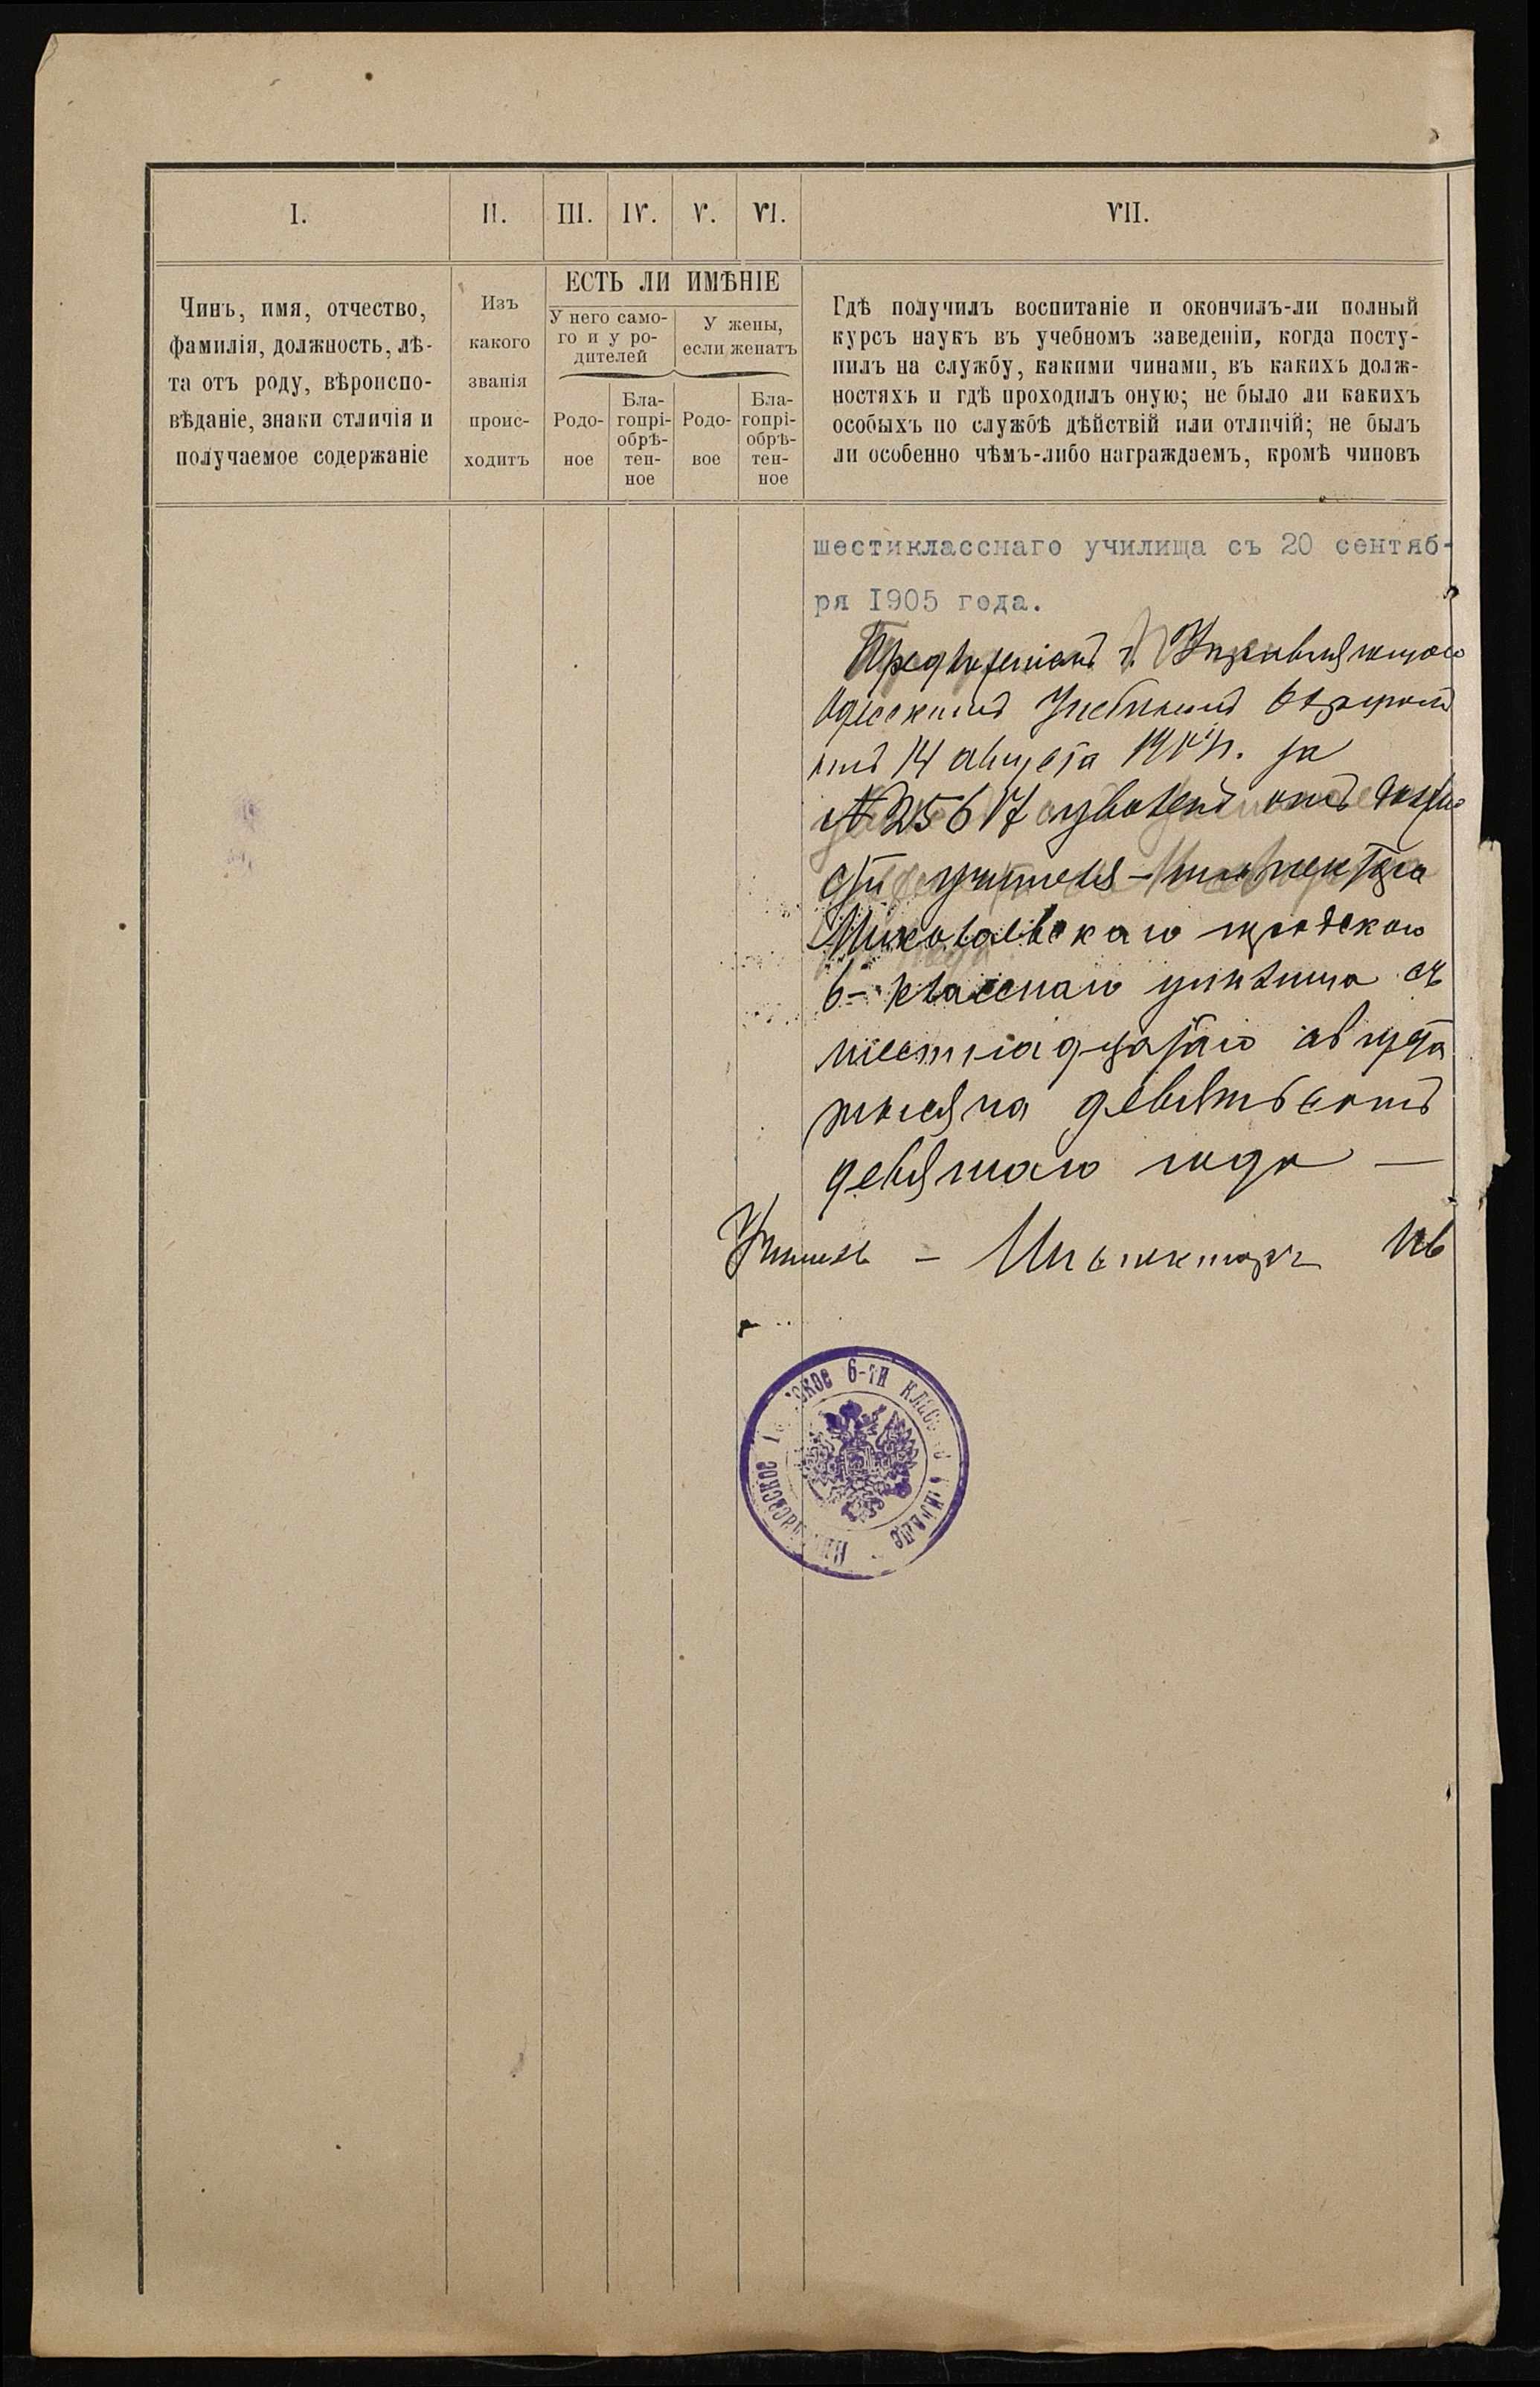 I. II. III. IV. V. VI. VII.
Чинъ, имя, отчество,
фамилія, должность, лѣ-
та отъ роду, вѣроиспо-
вѣданіе, знаки отличія и
получаемое содержаніе
Изъ
какого
званія
проис-
ходитъ
ЕСТЬ ЛИ ИМѢНІЕ
У него само-
го и у ро-
дителей
У жены,
если женатъ
Родо-
ное
Бла-
гопрі-
обрѣ-
тен-
ное
Родо-
вое
Бла-
гопрі-
обрѣ-
тен-
ное
Гдѣ получилъ воспитаніе и окончилъ-ли полный
курсъ наукъ въ учебномъ заведеніи, когда посту-
пилъ на службу, какими чинами, въ какихъ долж-
ностяхъ и гдѣ проходилъ оную; не было ли какихъ
особыхъ по службѣ дѣйствій или отличій; не былъ
ли особенно чѣмъ-либо награждаемъ, кромѣ чиновъ
шестикласснаго училища съ 20 сентяб-
ря 1905 года.
Предложеніемъ г. Управляющаго
Одесскимъ Учебнымъ Округомъ
отъ 14 августа за
№ 25617 уволенъ отъ должно
сти учителя-инспектора
Николаевскаго городского
6-класснаго училища съ
шестнадцатаго августа
тысяча девятьсотъ
девятаго года —
Учитель - Инспекторъ Ив
6-ти